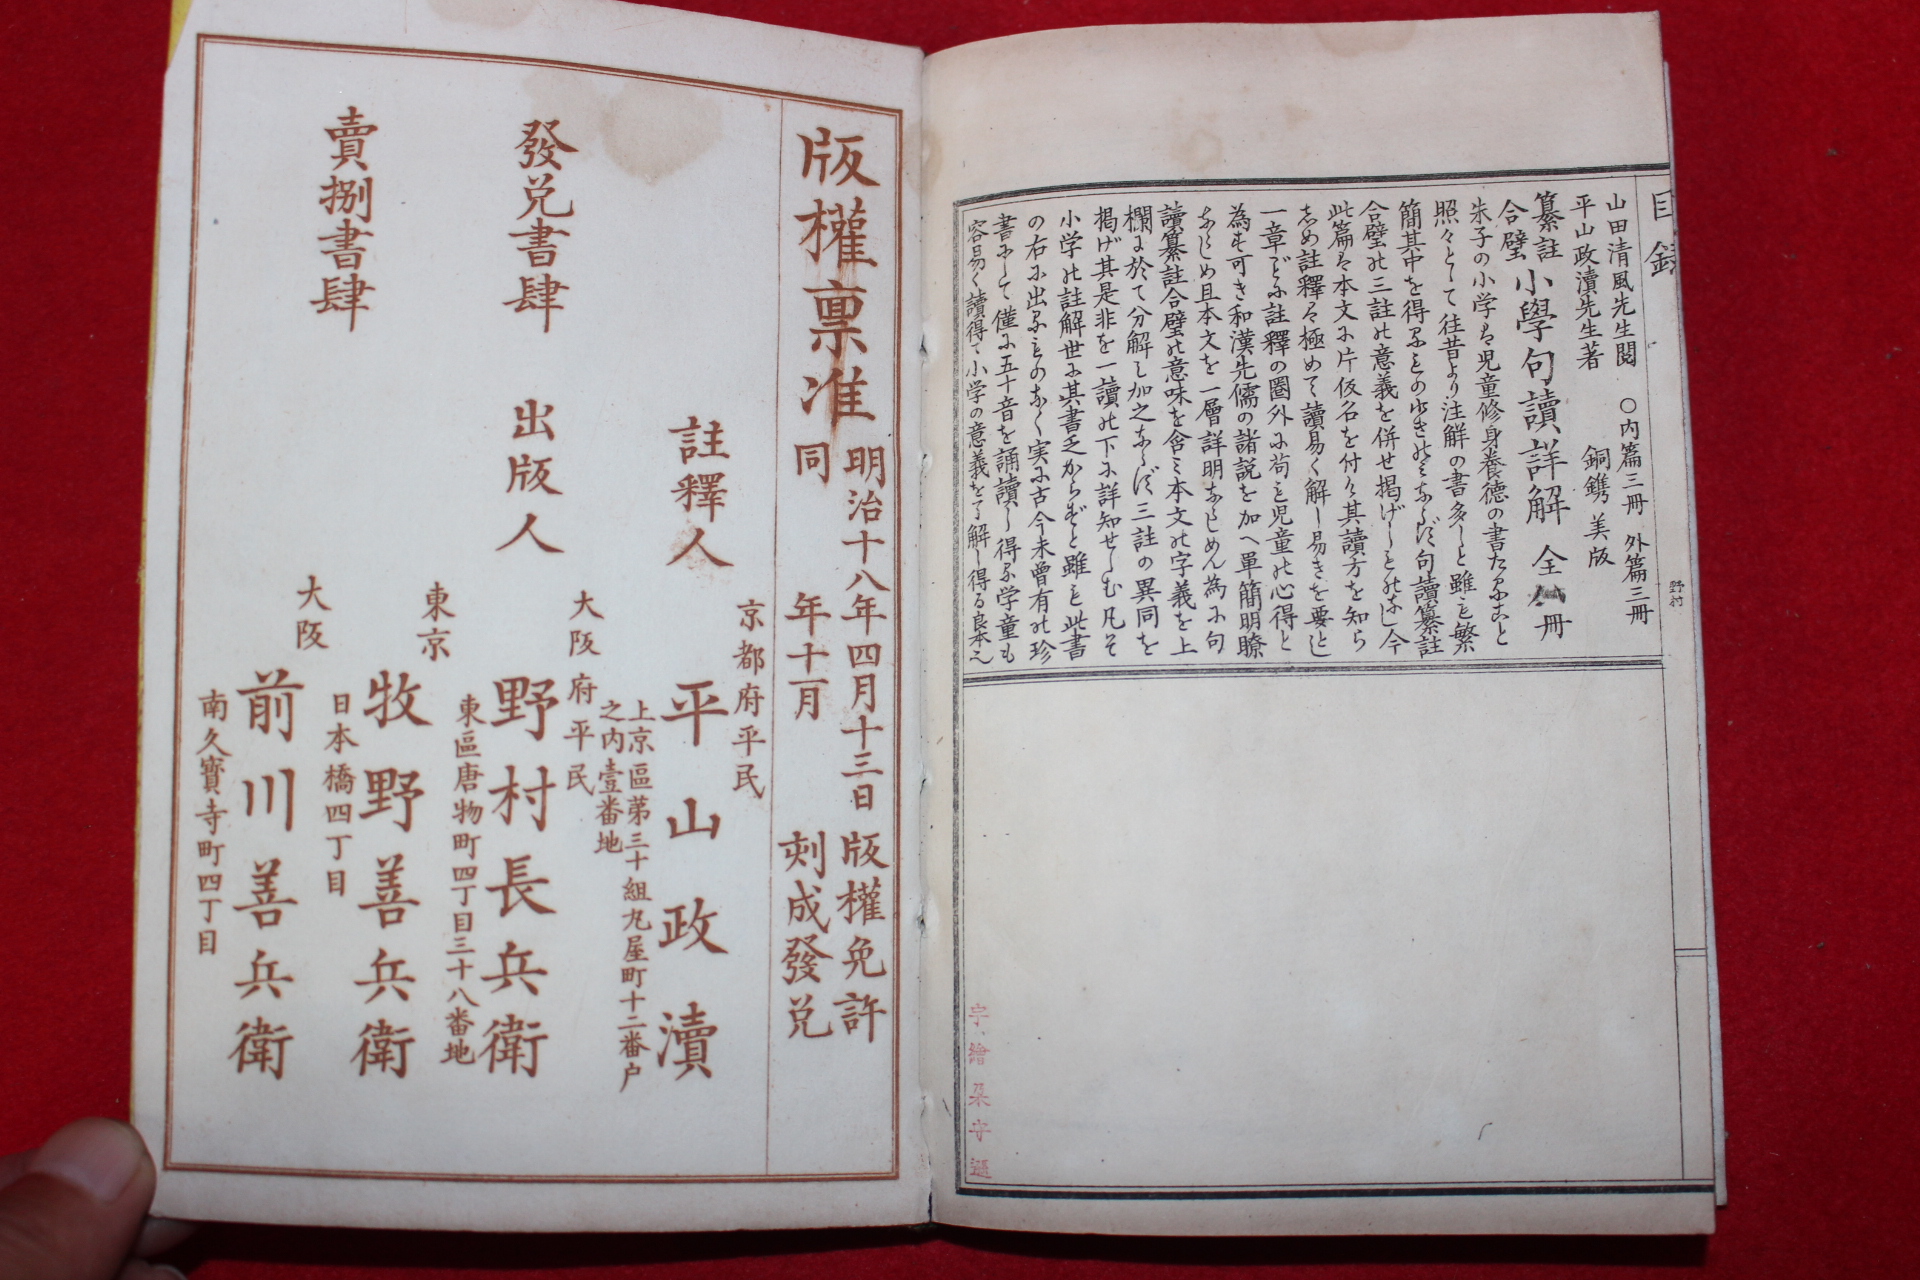 目録
野村
山田清風先生閲
平山政瀆先生著
○内篇三冊 外篇三冊
銅鐫 美版
纂註
合璧
小學句讀詳解 全 冊
朱子の小学ハ児童修身養德の書たること
照々として往昔より注解の書多しと雖も繁
簡其中を得るもの少きのミならず句讀纂註
合璧の三註の意義を併せ掲げしものなし今
此篇ハ本文に片仮名を付け其讀方を知ら
しめ註釋ハ極めて讀易く解し易きを要とし
一章ごとに註釋の圏外に苟も児童の心得と
為すべき和漢先儒の諸説を加へ單簡明瞭
ならしめ且本文を一層詳明ならしめん為に句
讀纂註合璧の意味を含ミ本文の字義を上
欄に於て分解し加之ならず三註の異同を
掲げ其是非を一讀の下に詳知せしむ凡そ
小学の註解世に其書乏からずと雖も此書
の右に出るものなく実に古今未曾有の珍
書にして僅に五十音を誦讀し得る学童も
容易く讀得て小学の意義を了解し得る良本也
版權稟准
明治十八年四月十三日 版權免許
同 年十一月 刻成發兌
註釋人
京都府平民
平山政瀆
上京區第三十組丸屋町十二番户
之内壹番地
發兌書肆 出版人
大阪府平民
野村長兵衛
東區唐物町四丁目三十八番地
東京
牧野善兵衛
日本橋四丁目
賣捌書肆
大阪
前川善兵衛
南久寳寺町四丁目